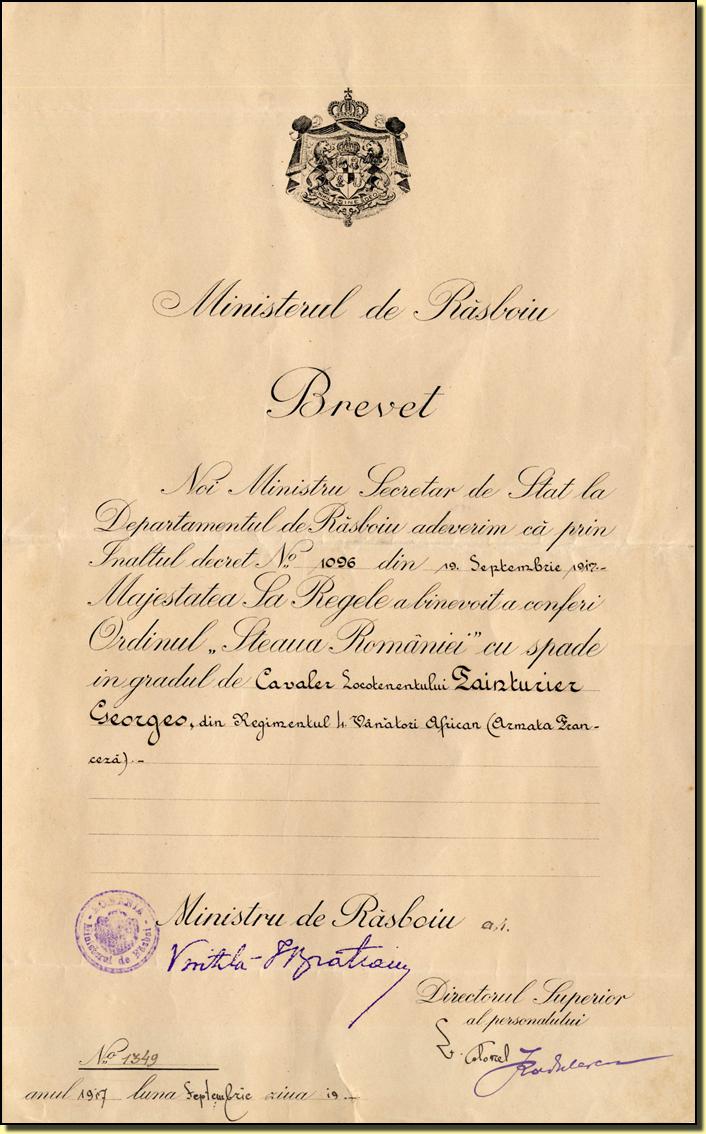 NIHIL SINE DEO
Ministerul de Răsboiu
Brevet
Noi Ministru Secretar de Stat la
Departamentul de Răsboiu adeverim că prin
Inaltul decret No. 1096 din 19. Septembrie 1917.-
Majestatea Sa Regele a binevoit a conferi
Ordinul „Steaua României" cu spade
in gradul de Cavaler Locotenentului Tainturier
Georges, din Regimentul 4. Vânători African (Armata Fran-
ceză).-
ROMÂNIA
Ministerul de Răsboi
Ministru de Răsboiu a.i.
Vintilă I Brătianu
Directorul Superior
al personalului
Lt. Colonel
No. 1349
anul 1917 luna Septembrie ziua 19.-